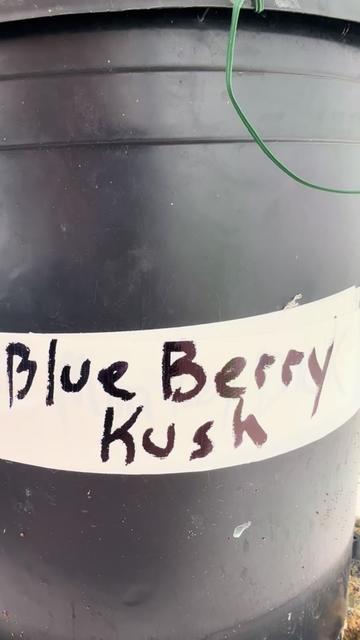 Blue Berry
Kush